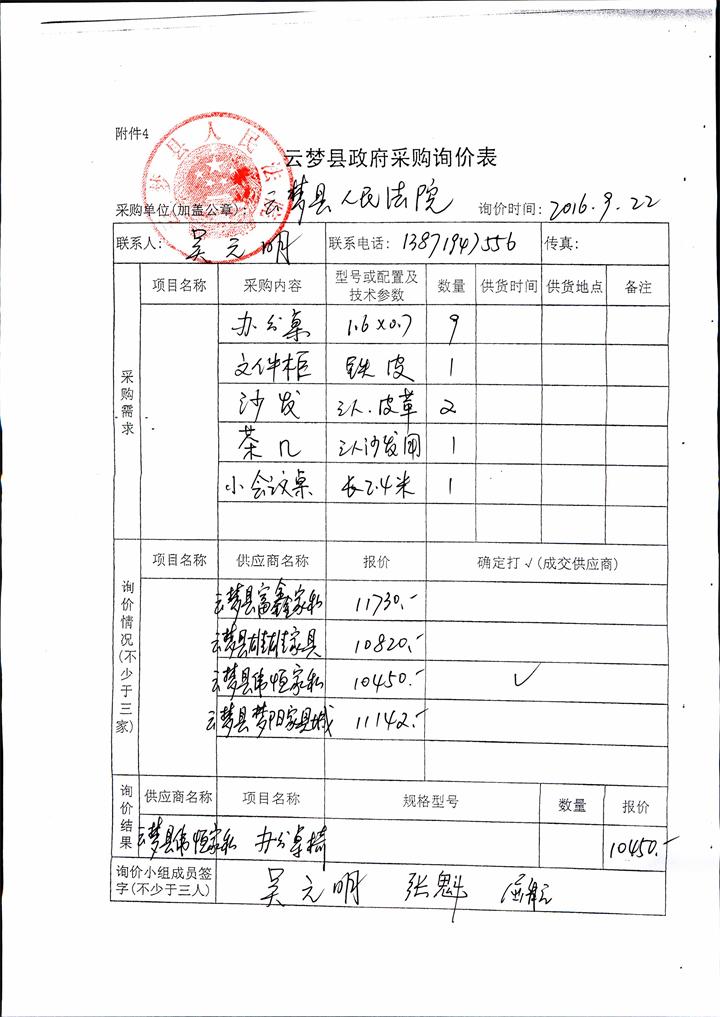 附件4
云梦县政府采购询价表
采购单位(加盖公章): 云梦县人民法院 询价时间: 2016.9.22
联系人: 吴元明 联系电话: 13871947556 传真:
采购需求
项目名称 采购内容 型号或配置及技术参数 数量 供货时间 供货地点 备注
办公桌 1.6×0.7 9
文件柜 铁皮 1
沙发 三人.皮革 2
茶几 三人沙发用 1
小会议桌 长2.4米 1
询价情况(不少于三家)
项目名称 供应商名称 报价 确定打√(成交供应商)
云梦县富鑫家私 11730.-
云梦县雄雄家具 10820.-
云梦县伟恒家私 10450.- √
云梦县梦阳家具城 11142.-
询价结果
供应商名称 项目名称 规格型号 数量 报价
云梦县伟恒家私 办公桌椅 10450.-
询价小组成员签字(不少于三人) 吴元明 张魁